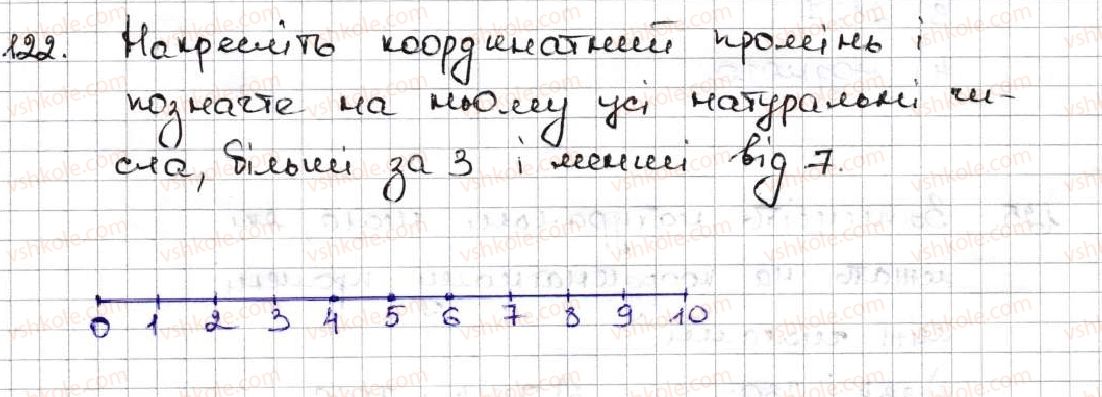 122. Накресліть координатний промінь і
позначте на ньому усі натуральні чи-
сла, більші за 3 і менші від 7.
0 1 2 3 4 5 6 7 8 9 10